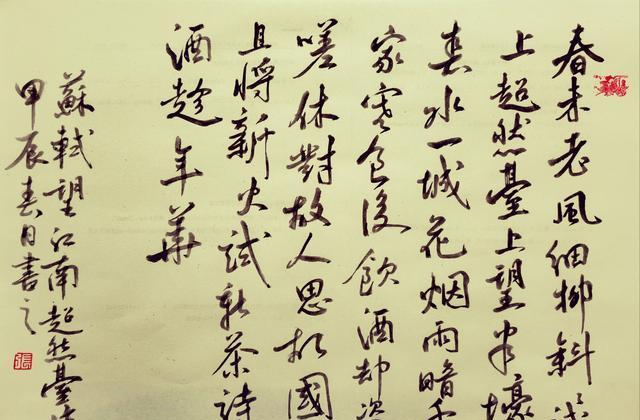 春未老風細柳斜
上超然臺上望半壕
春水一城花烟雨暗千
家寒食後飲酒却
嗟休對故人思故國
且將新火試新茶詩
酒趁年華
蘇軾望江南超然臺
甲辰春日書之
張